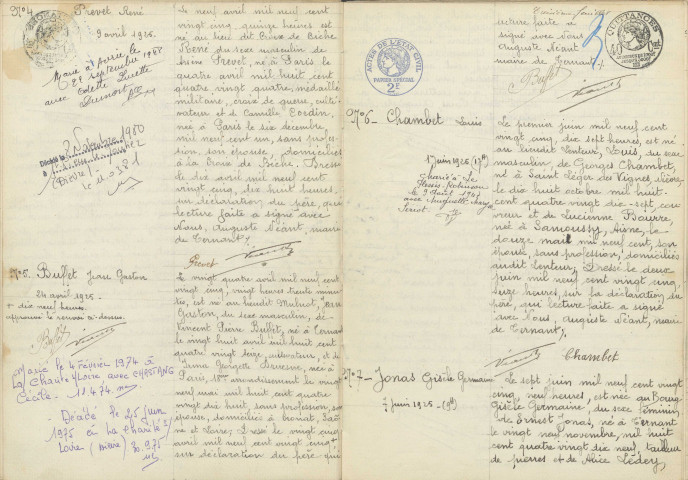 N° 4 Prevet René
9 avril 1925.
Marié à
le 21 septembre 1968
avec Odette Lucette
Dumont
Décédé le 1980
n° 381
Le neuf avril mil neuf cent
vingt cinq, quinze heures est
né au lieu dit Croix de Biche
René du sexe masculin de
Prevet, né à Paris le
quatre avril mil huit cent
quatre vingt quatre, médaillé
militaire, croix de guerre, culti-
vateur et de Camille Cordin,
née à Paris le six décembre,
mil neuf cent un, sans profes-
sion, son épouse, domiciliés
à la Croix de Biche. Dressé
le dix avril mil neuf cent
vingt cinq, dix huit heures.
sur déclaration du père, qui
lecture faite a signé avec
Nous, Auguste Néant, maire
de Ternant.
Prevet
N° 5. Buffet Jean Gaston
24 avril 1925.
+ dix neuf heures.
approuvé le renvoi ci-dessus.
Buffet
Marié le 4 février 1974 à
La Charité/Loire avec CHASTANG
Cécile. 11474
Décédé le 25 juin
1975 à La Charité s/
Loire (Nièvre) 30.975
Le vingt quatre avril mil neuf cent
vingt cinq, vingt heures trente minu-
tes, est né au lieudit Mulnot, Jean
Gaston, du sexe masculin, de
Vincent Pierre Buffet, né à Ternant
le vingt huit avril mil huit cent
quatre vingt seize, cultivateur, et de
Irma Georgette née à
Paris, 18me arrondissement le
neuf mai mil huit cent quatre
vingt dix huit, sans profession, son
épouse, domiciliés à
et Loire. Dressé le vingt cinq
avril mil neuf cent vingt cinq +
sur déclaration du père qui
lecture faite a
signé avec Nous
Auguste Néant
maire de Ternant.
Buffet
ACTES DE L'ETAT CIVIL
PAPIER SPECIAL
2F
QUITTANCES
N° 6 - Chambet Louis
1er juin 1925 (17h)
Marié à Le
Plessis-Robinson
le 9 août 194
avec Huguette
Le premier juin mil neuf cent
vingt cinq, dix sept heures, est né
au lieudit Lenteur, Louis, du sexe
masculin, de Georges Chambet,
né à Saint Léger des Vignes, Nièvre,
le dix huit octobre mil huit
cent quatre vingt dix-sept, cou-
vreur et de Lucienne Beurre,
née à Samoussy, Aisne, le
douze mai mil neuf cent, son
épouse, sans profession, domiciliés
audit Lenteur. Dressé le deux
juin mil neuf cent vingt cinq,
seize heures, sur la déclaration du
père, qui lecture faite a signé
avec Nous, Auguste Néant, maire
de Ternant.
Chambet
N° 7 - Jonas Gisèle Germaine
7 juin 1925 - (9h)
Le sept juin mil neuf cent vingt
cinq, neuf heures, est née au Bourg
Gisèle Germaine, du sexe féminin,
de Ernest Jonas, né à Ternant
le vingt neuf novembre, mil huit
cent quatre vingt dix neuf, tailleur
de pierres et de Alice Lédey,